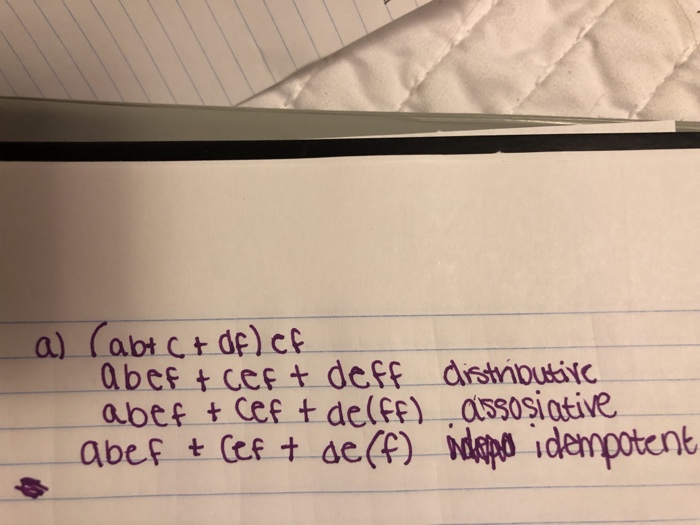 a) (ab + c + df) ef
abef + cef + deff distributive
abef + cef + de(ff) assosiative
abef + cef + de(f) idempotent